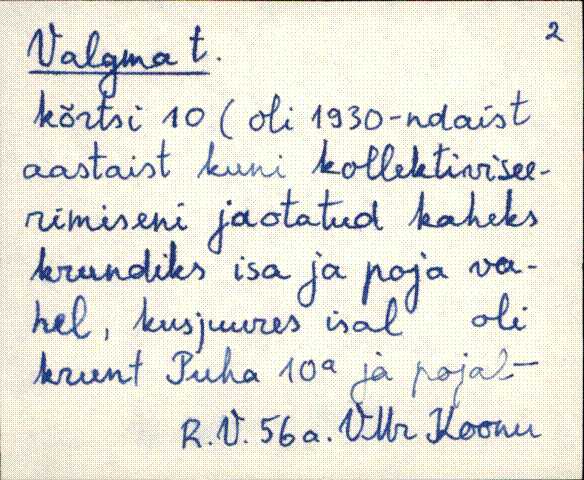 2
Valgma t.
kõrtsi 10 (oli 1930-ndaist
aastaist kuni kollektivisee-
rimiseni jaotatud kaheks
krundiks isa ja poja va-
hel, kusjuures isal oli
krunt Puha 10a ja pojal-
R.V. 56 a. VMr Koonu